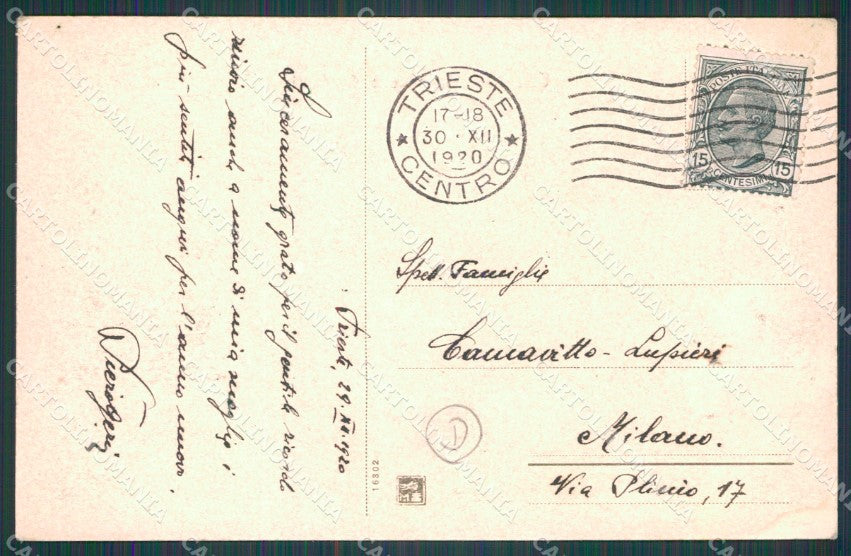 Trieste, 29.XII.1920
Sinceramente grato per il gentile ricordo
invio anche a nome di mia moglie i
più sentiti auguri per l'anno nuovo.
TRIESTE
17-18
30·XII
1920
CENTRO
POSTE ITALIANE
15 CENTESIMI 15
Spett. Famiglie
Camavitto - Lupieri
Milano.
Via Plinio, 17
D
16302
CARTOLINOMANIA